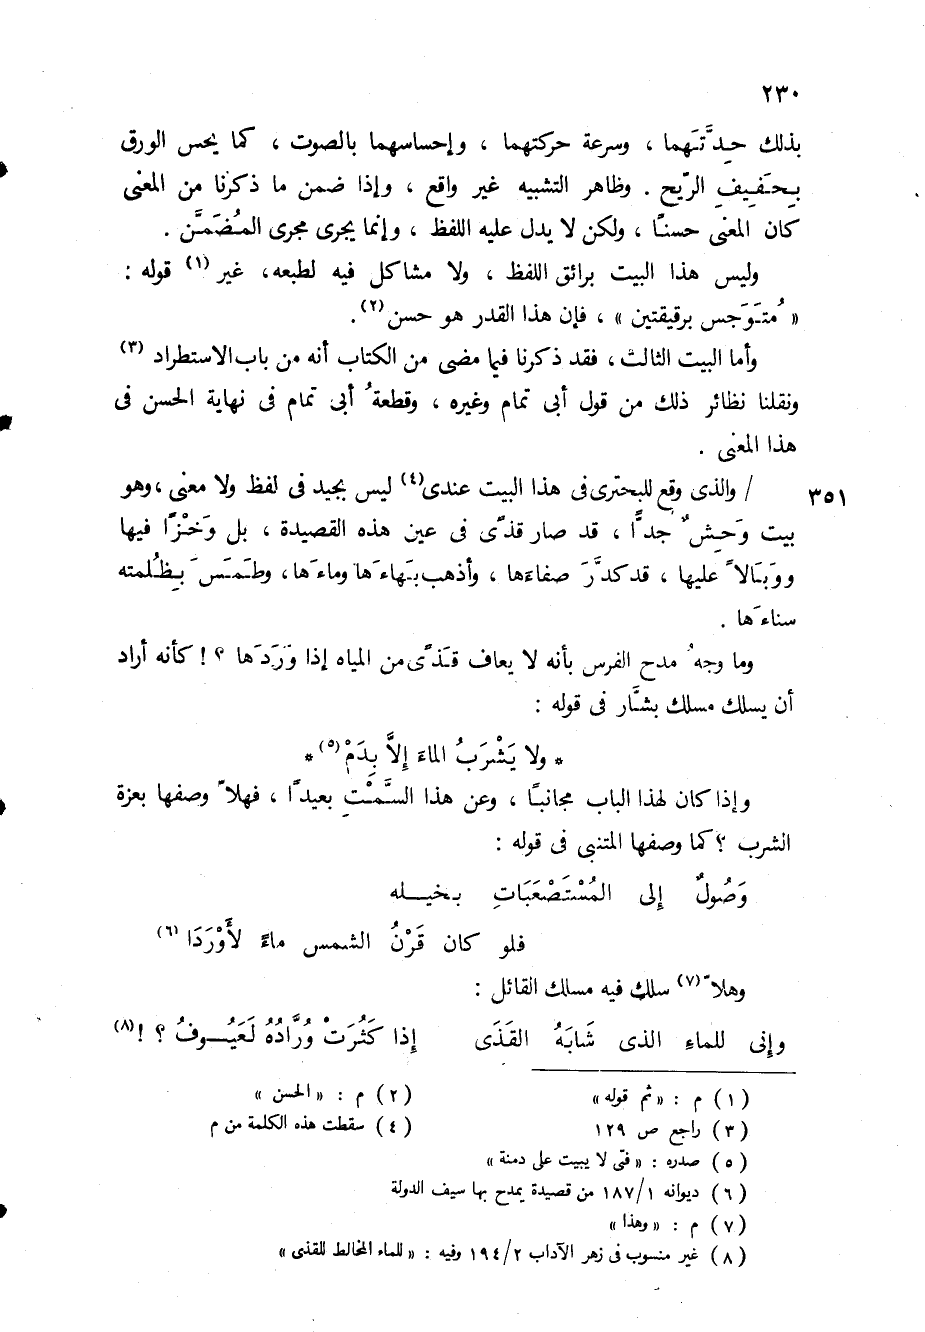 ٢٣٠
بذلك حِدَّتَهما ، وسرعة حركتهما ، وإحساسهما بالصوت ، كما يحس الورق
بِحَفِيفِ الرّيح . وظاهر التشبيه غير واقع ، وإذا ضمن ما ذكرنا من المعنى
كان المعنى حسنًا ، ولكن لا يدل عليه اللفظ ، وإنما يجرى مجرى المُضَمَّن .
وليس هذا البيت برائق اللفظ ، ولا مشاكل فيه لطبعه، غير (١) قوله :
« مُتَوَجس برقيقتين » ، فإن هذا القدر هو حسن (٢).
وأما البيت الثالث، فقد ذكرنا فيما مضى من الكتاب أنه من باب الاستطراد (٣)
ونقلنا نظائر ذلك من قول أبى تمام وغيره ، وقطعةُ أبى تمام فى نهاية الحسن فى
هذا المعنى .
٣٥١ / والذى وقع للبحترى فى هذا البيت عندى (٤) ليس بجيد فى لفظ ولا معنى ، وهو
بيت وَحِشٌ جدًّا ، قد صار قذًى فى عين هذه القصيدة ، بل وَخْزًا فيها
ووَبَالاً عليها ، قد كدَّرَ صفاءَها ، وأذهب بَهاءَها وماءَها، وطَمَسَ بِظُلمته
سناءَها .
وما وجهُ مدح الفرس بأنه لا يعاف قَذًى من المياه إذا وَرَدَها ؟ ! كأنه أراد
أن يسلك مسلك بشَّار فى قوله :
* ولا يَشْرَبُ الماءَ إِلاَّ بِدَمْ (٥) *
وإذا كان لهذا الباب مجانبًا ، وعن هذا السَّمْتِ بعيدًا ، فهلاّ وصفها بعزة
الشرب ؟ كما وصفها المتنبى فى قوله :
وَصُولٌ إلى المُسْتَصْعَبَاتِ بخيله
فلو كان قَرْنُ الشمس ماءً لأَوْرَدَا (٦)
وهلاّ (٧) سلك فيه مسلك القائل :
وإنى للماءِ الذى شَابَهُ القَذَى إذا كَثُرَتْ وُرَّادُهُ لَعَيُوفُ ؟ ! (٨)
(١) م : « ثم قوله » (٢) م : « الحسن »
(٣) راجع ص ١٢٩ (٤) سقطت هذه الكلمة من م
(٥) صدره : « فتى لا يبيت على دمنة »
(٦) ديوانه ١٨٧/١ من قصيدة يمدح بها سيف الدولة
(٧) م : « وهذا »
(٨) غير منسوب فى زهر الآداب ١٩٤/٢ وفيه : « للماء المخالط للقذى »